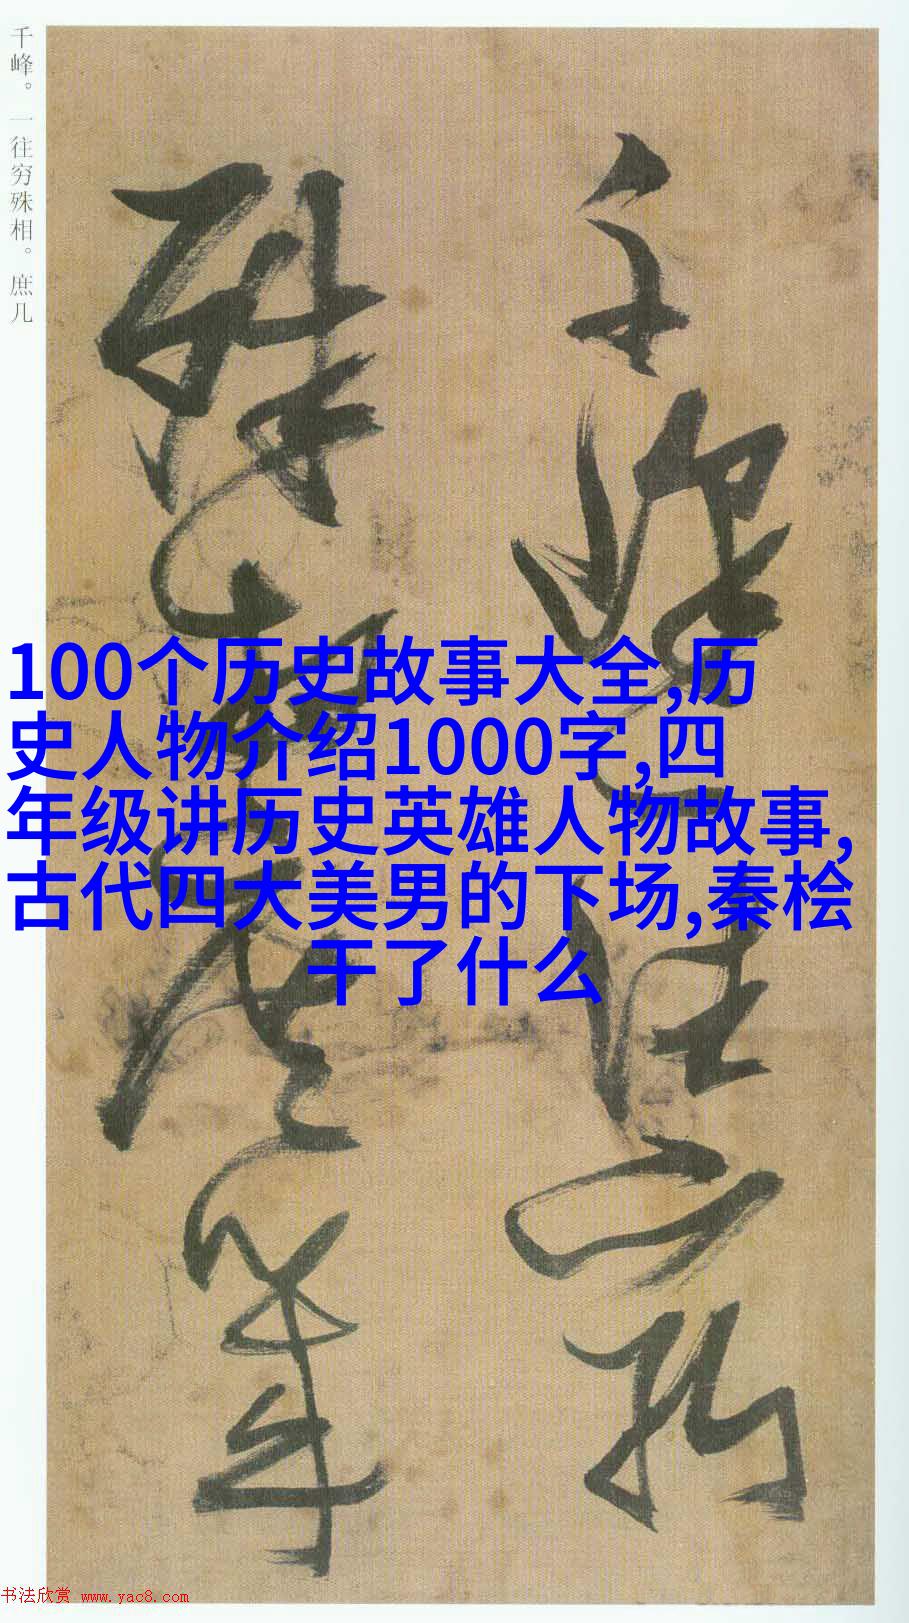 千峰。一往穷殊相。庶几
千峰一往穷
殊相庶几
100个历史故事大全,历
史人物介绍1000字,四
年级讲历史英雄人物故事,
古代四大美男的下场,秦桧
干了什么
书法欣赏 www.yac8.com